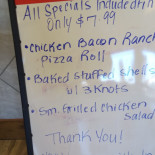 All Specials Included
Only $7.99
• Chicken Bacon Ranch
Pizza Roll
• Baked Stuffed Shells
w/ 3 Knots
• Sm. Grilled Chicken
Salad
Thank You!